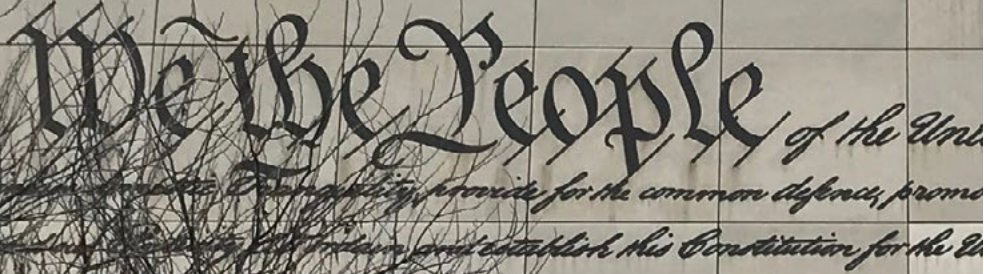 We the People of the Uni
Tranquility, provide for the common defence, promo
ordain and establish this Constitution for the U